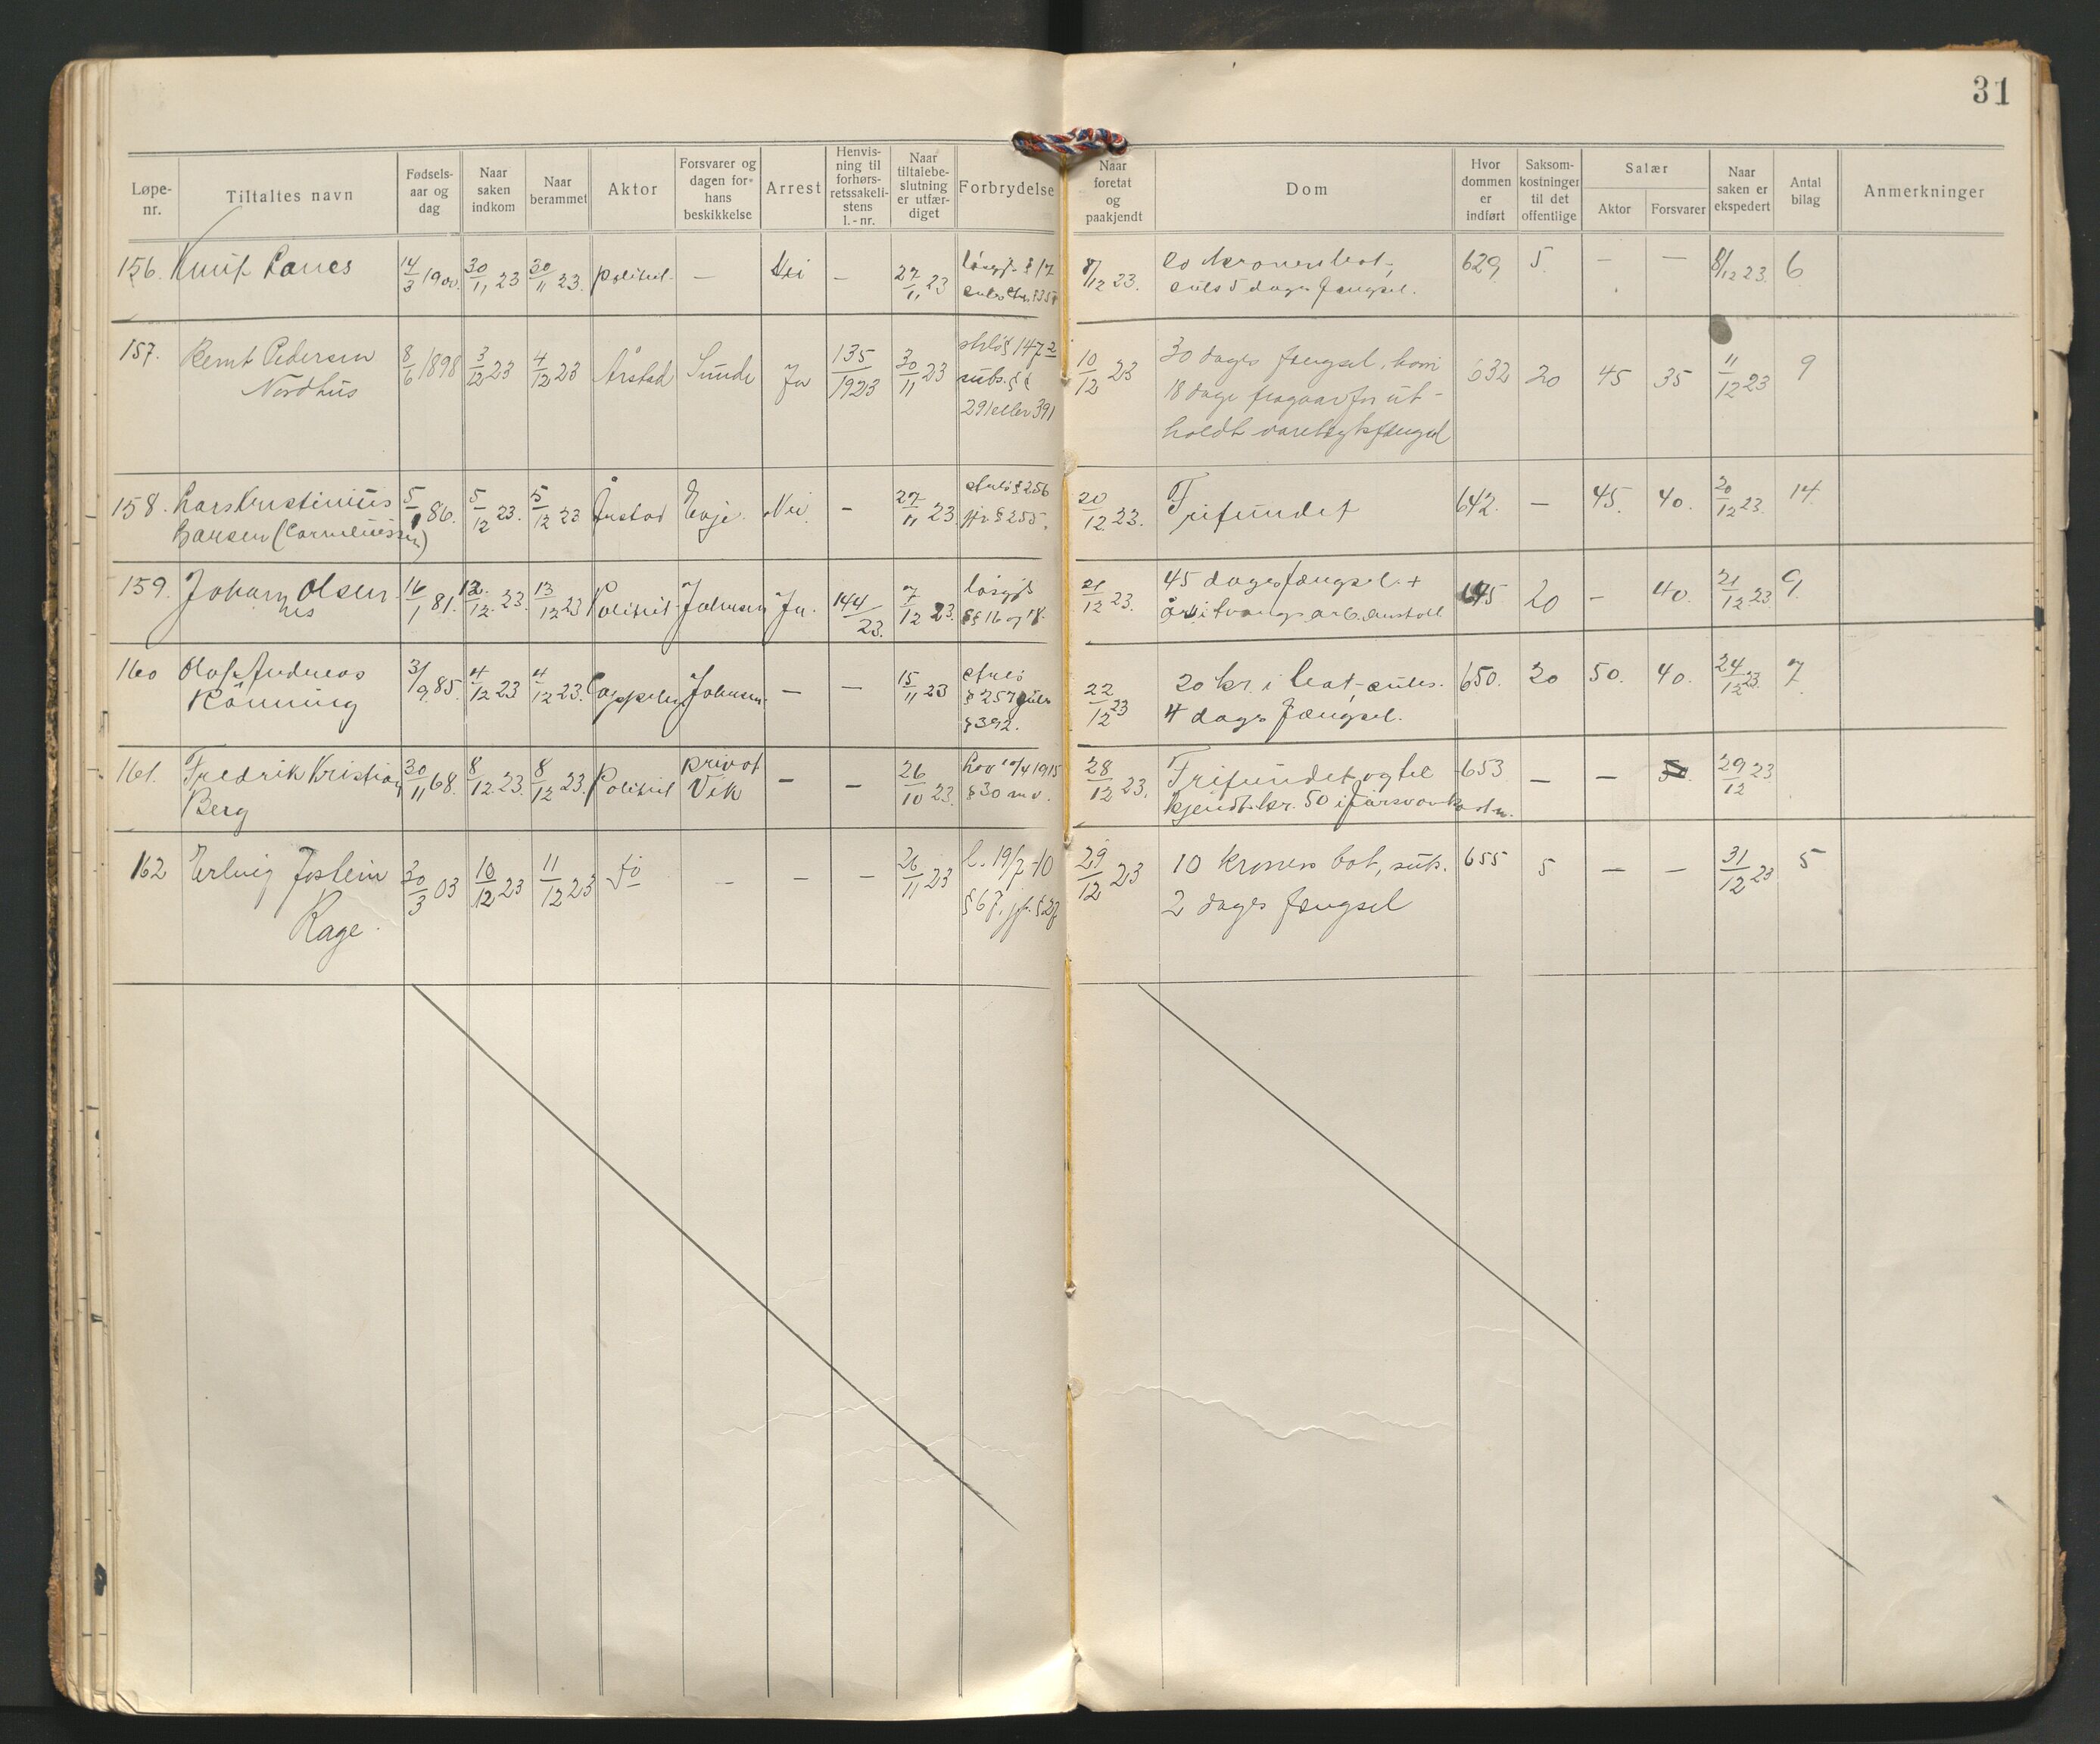 31
Løpe-nr. Tiltaltes navn Fødsels-aar og dag Naar saken indkom Naar berammet Aktor Forsvarer og dagen for hans beskikkelse Arrest Henvis-ning til forhørs-retssakeli-stens l.-nr. Naar tiltalebe-slutning er utfær-diget Forbrydelse Naar foretat og paakjendt Dom Hvor dommen er indført Saksom-kostninger til det offentlige Salær Aktor Forsvarer Naar saken er ekspedert Antal bilag Anmerkninger
156. Knut 14/3 1900. 30/11 23 30/11 23. Politiet. — Nei — 27/11 23 løsgj. § 17 8/12 23. 629 5. — — 8/12 23. 6
subs 5 dages fængsel.
157. Bernt Pedersen 8/6 1898 3/12 23 4/12 23 Årstad Sunde Ja 135/1923 30/11 23 strl § 147 2 10/12 23 30 dages fængsel, hvori 632 20 45 35 11/12 23 9
Nordhus subs. §§ 18 dage fragaar for ut-
291 eller 391 holdt varetægtsfængsel
158. Lars Kristinius 5/1 86. 5/12 23. 5/12 23 Årstad Evje. Nei — 27/11 23. strlo § 256 20/12 23. Frifundet 642. — 45. 40. 20/12 23. 14
Larsen (Corneliussen) jfr. § 255.
159. Johan Olsen 16/1 81. 12/12. 23. 13/12 23 Politiet Johnsen Ja. 144/23. 7/12 23. løsgjf 21/12 23. 45 dages fængsel + 645 20 — 40. 21/12 23 9.
nes §§ 16 og 18. år i tvangsarb. anstalt
160 Olaf Andreas 3/9 85. 4/12 23 4/12 23. Cappelen Johnsen. — — 15/11 23 strlo 22/12 23 20 kr. i bot subs. 650. 20 50. 40. 24/12 23. 7.
Rönning § 257 subs 4 dages fængsel.
§ 392.
161. Fredrik Kristian 30/11 68. 8/12. 23. 8/12 23. Politiet privat — — 26/10 23. Lov 10/4 1915 28/12 23. Frifundet og til 653 — — 29/12 23
Berg Vik § 30 m.v. kjendt kr. 50 i forsvarskostn.
162 Erling Jostein 30/3 03 10/12 23 11/12 23 do — — — 26/11 23 l. 19/7 -10 29/12 23 10 kroners bot, subs. 655 5 — — 31/12 23 5
Rage. § 67, jf. § 27 2 dages fængsel